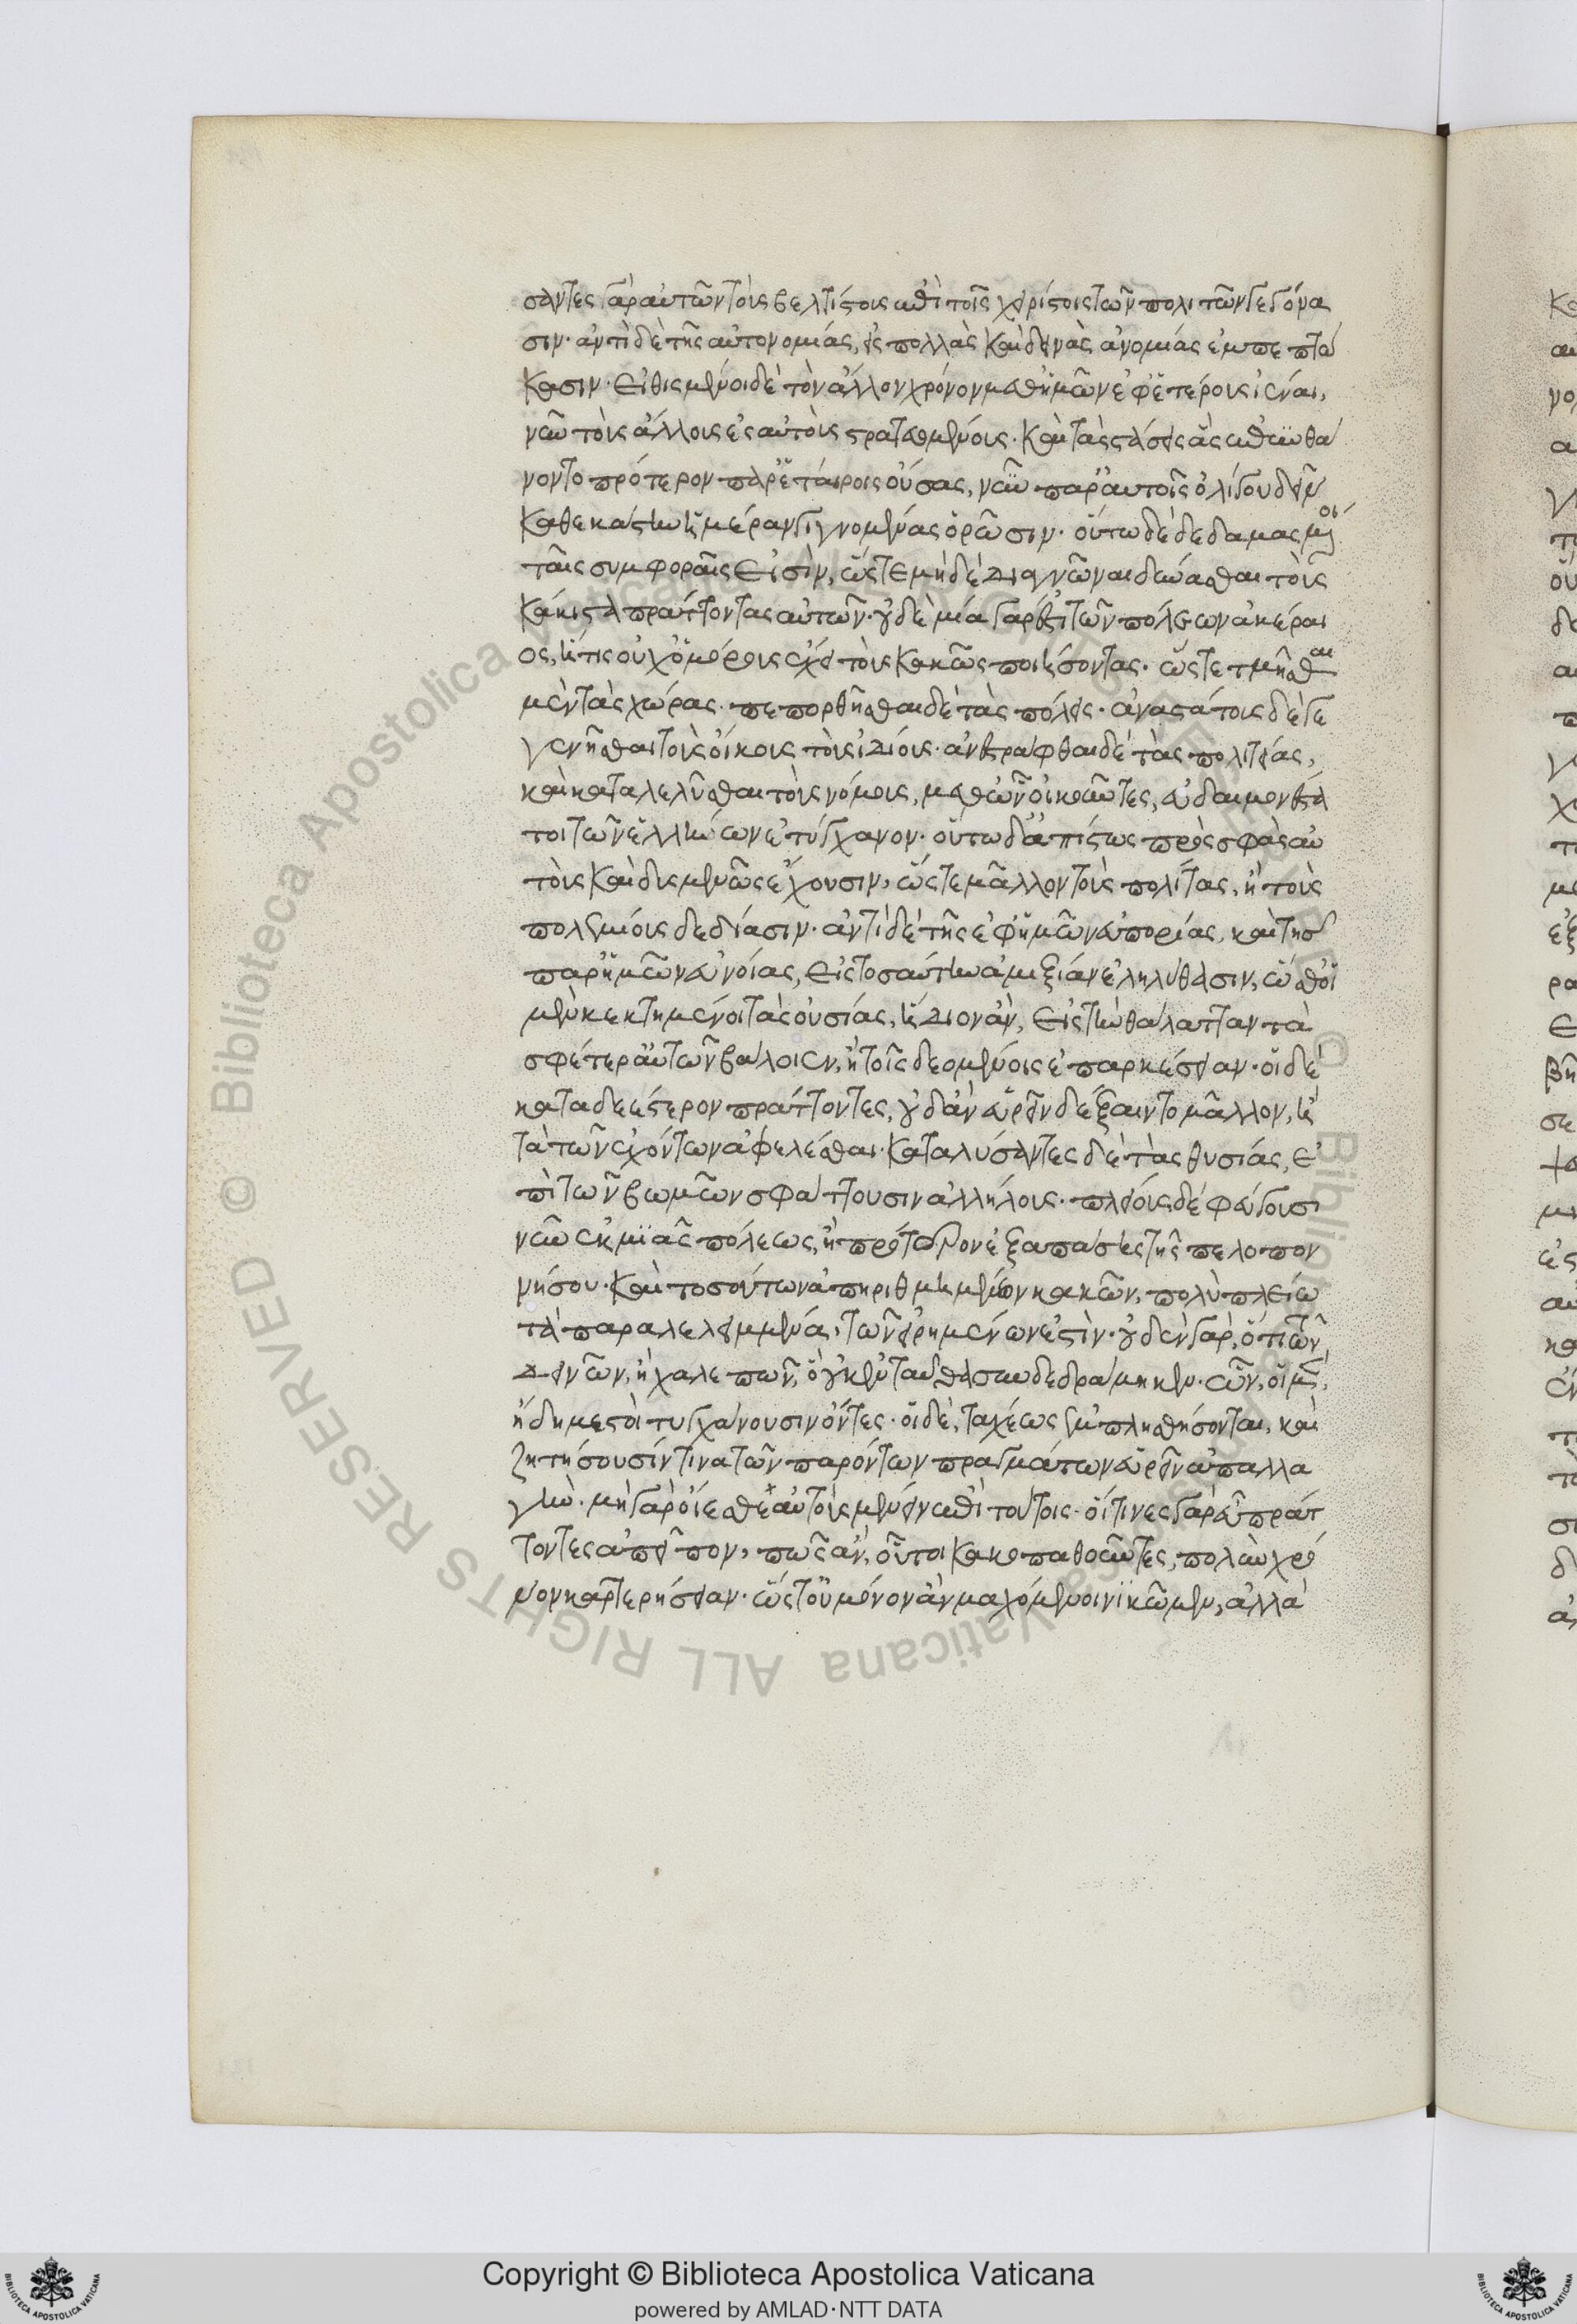 σαντες γὰρ αὐτῶν τοὺς βελτίστους ἐπὶ τοῖς χειρίστοις τῶν πολιτῶν γεγόνα
σιν· ἀντὶ δὲ τῆς αὐτονομίας, εἰς πολλὰς καὶ δεινὰς ἀνομίας ἐμπεπτώ
κασιν· εἰθισμένοι δὲ τὸν ἄλλον χρόνον μεθ' ἡμῶν ἐφ' ἑτέρους ἰέναι,
νῦν τοὺς ἄλλους ἐς αὐτοὺς στρατευομένους· καὶ τὰς στάσεις ἃς ἐπυνθά
νοντο πρότερον παρ' ἑτέροις οὔσας, νῦν παρ' αὑτοῖς ὀλίγου δεῖν
καθ' ἑκάστην ἡμέραν γιγνομένας ὁρῶσιν· οὕτω δὲ δεδαμασμένοι
ταῖς συμφοραῖς εἰσὶν, ὥστε μηδὲ διαγνῶναι δύνασθαι τοὺς
κάκιστα πράττοντας αὐτῶν· οὐδεμία γάρ ἐστι τῶν πόλεων ἀκέραι
ος, ἥτις οὐχ ὁμόρους ἔχει τοὺς κακῶς ποιήσοντας· ὥστε τμηθῆναι
μὲν τὰς χώρας· πεπορθῆσθαι δὲ τὰς πόλεις· ἀναστάτους δὲ γε
γενῆσθαι τοὺς οἴκους τοὺς ἰδίους· ἀνεστράφθαι δὲ τὰς πολιτείας,
καὶ καταλελῦσθαι τοὺς νόμους, μεθ' ὧν οἰκοῦντες, εὐδαιμονέστα
τοι τῶν ἑλλήνων ἐτύγχανον· οὕτω δ' ἀπίστως πρὸς σφᾶς αὐ
τοὺς καὶ δυσμενῶς ἔχουσιν, ὥστε μᾶλλον τοὺς πολίτας, ἢ τοὺς
πολεμίους δεδίασιν· ἀντὶ δὲ τῆς ἐφ' ἡμῶν εὐπορίας, καὶ τῆς
παρ' ἡμῶν εὐνοίας, εἰς τοσαύτην ἀμιξίαν ἐληλύθασιν, ὥσθ' οἱ
μὲν κεκτημένοι τὰς οὐσίας, ἥδιον ἂν, εἰς τὴν θάλατταν τὰ
σφέτερ' αὐτῶν βάλοιεν, ἢ τοῖς δεομένοις ἐπαρκέσειαν· οἱ δὲ
καταδεέστερον πράττοντες, οὐδ' ἂν εὑρεῖν δέξαιντο μᾶλλον, ἢ
τὰ τῶν ἐχόντων ἀφελέσθαι· καταλύσαντες δὲ τὰς θυσίας, ἐ
πὶ τῶν βωμῶν σφάττουσιν ἀλλήλους· πλείους δὲ φεύγουσι
νῦν ἐκ μϊᾶς πόλεως, ἢ πρότερον ἐξ ἁπάσης τῆς πελοπον
νήσου· καὶ τοσούτων ἀπηριθμημένων κακῶν, πολὺ πλείω
τὰ παραλελειμμένα, τῶν εἰρημένων ἐστὶν· οὐδὲν γὰρ, ὅ τι τῶν
δεινῶν, ἢ χαλεπῶν, ὃ οὐκ ἐνταῦθα συνδεδράμηκεν· ὧν, οἱ μὲν,
ἤδη μεστοὶ τυγχάνουσιν ὄντες· οἱ δὲ, ταχέως ἐμπλησθήσονται, καὶ
ζητήσουσίν τινα τῶν παρόντων πραγμάτων εὑρεῖν ἀπαλλα
γὴν· μὴ γὰρ οἴεσθ' αὐτοὺς μένειν ἐπὶ τούτοις· οἵτινες γὰρ εὖ πράτ
τοντες ἀπεῖπον, πῶς ἂν, οὗτοι κακοπαθοῦντες, πολὺν χρό
νον καρτερήσειαν· ὥστ' οὐ μόνον ἂν μαχόμενοι νϊκῶμεν, ἀλλὰ